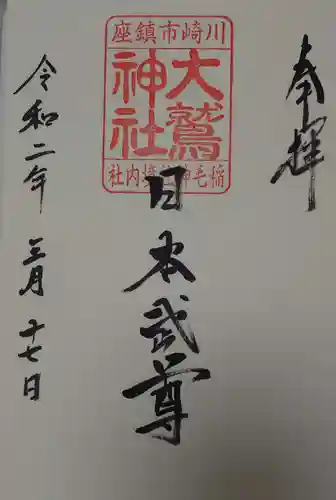 奉拝
川崎市鎮座
大鷲神社
稲毛神社境内社
日本武尊
令和二年 三月 十七日